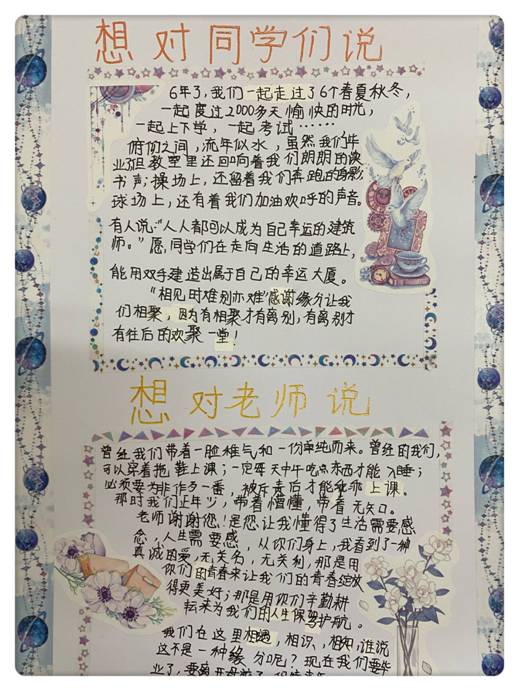 想对同学们说
6年了,我们一起走过了6个春夏秋冬,
一起度过2000多天愉快的时光,
一起上下学,一起考试……
俯仰之间,流年似水,虽然我们毕
业了但教室里还回响着我们朗朗的读
书声;操场上,还留着我们奔跑的身影;
球场上,还有着我们加油欢呼的声音。
有人说:“人人都可以成为自己幸运的建筑
师。”愿同学们在走向生活的道路上,
能用双手建造出属于自己的幸运大厦。
“相见时难别亦难”感谢缘分让我
们相聚,因为有相聚才有离别,有离别才
有往后的欢聚一堂!
想对老师说
曾经我们带着一脸稚气和一份单纯而来。曾经的我们,
可以穿着拖鞋上课;一定每天中午吃点东西才能入睡;
必须要为非作歹一番,被斥责后才能乖乖上课。
那时我们正年少,带着懵懂,带着无知。
老师谢谢您!是您让我懂得了生活需要感
恋,人生需要感,从你们身上,我看到了一种
真诚的爱,无关名,无关利,那是用
你们的青春来让我们的青春绽放
得更美好;那是用你们辛勤耕
耘来为我们的人生保驾护航。
我们在这里相遇,相识,相知,谁说
这不是一种缘分呢?现在我们要毕
业了,要离开母校了